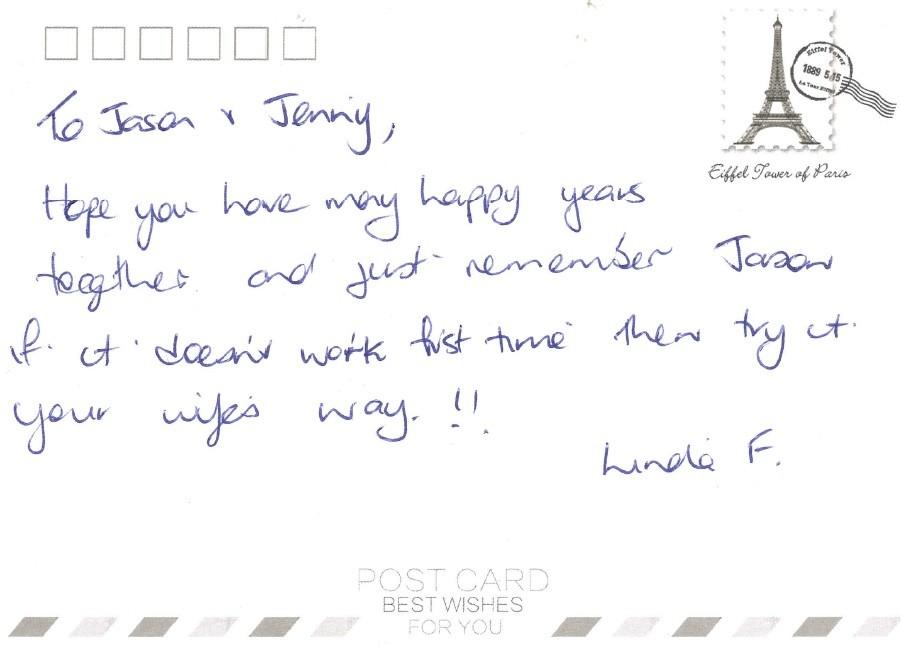 Eiffel Tower
1889 5 15
La Tour Eiffel
Eiffel Tower of Paris
To Jason & Jenny,
Hope you have may happy years
teogther. and just remember Jason
if it doesn't work fist time then try it
your wife's way. !!
Linda F.
POST CARD
BEST WISHES
FOR YOU